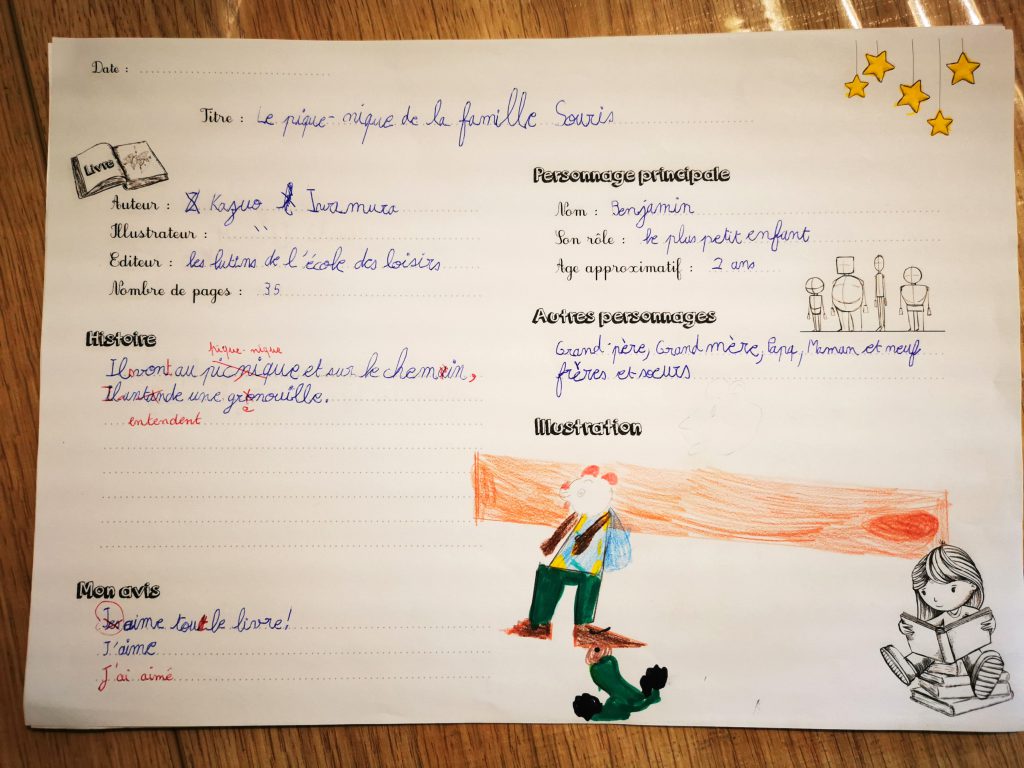 Date :
Titre : Le pique-nique de la famille Souris
Livre
Auteur : Kazuo Iwamura
Illustrateur : "
Editeur : les lutins de l'école des loisirs
Nombre de pages : 35
Histoire
pique-nique
Il vont au picnique et sur le chemin,
Il untande une grenouille.
entendent
Mon avis
aime tout le livre!
J'aime
J'ai aimé
Personnage principale
Nom : Benjamin
Son rôle : le plus petit enfant
Age approximatif : 2 ans
Autres personnages
Grand-père, Grand mère, Papa, Maman et neuf
frères et sœurs
Illustration